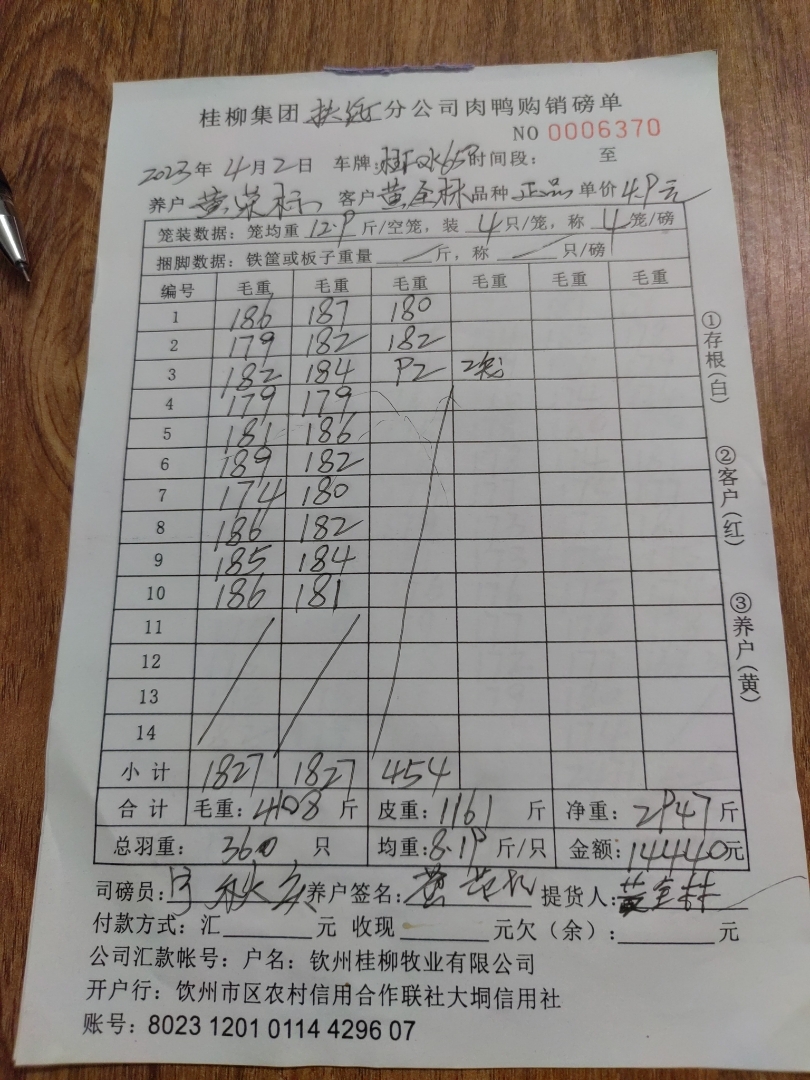 桂柳集团 分公司肉鸭购销磅单
NO 0006370
2023年 4月2日 车牌: 时间段: 至
养户 黄荣标 客户 黄全林 品种 正品 单价 4.9元
笼装数据: 笼均重 12.9 斤/空笼, 装 4 只/笼, 称 4 笼/磅
捆脚数据: 铁筐或板子重量 斤, 称 只/磅
编号 毛重 毛重 毛重 毛重 毛重 毛重
1 186 187 180
2 179 182 182
3 182 184 92 2笼
4 179 179
5 181 186
6 189 182
7 174 180
8 186 182
9 185 184
10 186 181
11
12
13
14
小计 1827 1827 454
合计 毛重: 4108 斤 皮重: 1161 斤 净重: 2947 斤
总羽重: 360 只 均重: 8.19 斤/只 金额: 14440元
司磅员: 养户签名: 提货人: 黄全林
付款方式: 汇 元 收现 元欠(余): 元
公司汇款帐号: 户名: 钦州桂柳牧业有限公司
开户行: 钦州市区农村信用合作联社大垌信用社
账号: 8023 1201 0114 4296 07
①存根(白)
②客户(红)
③养户(黄)